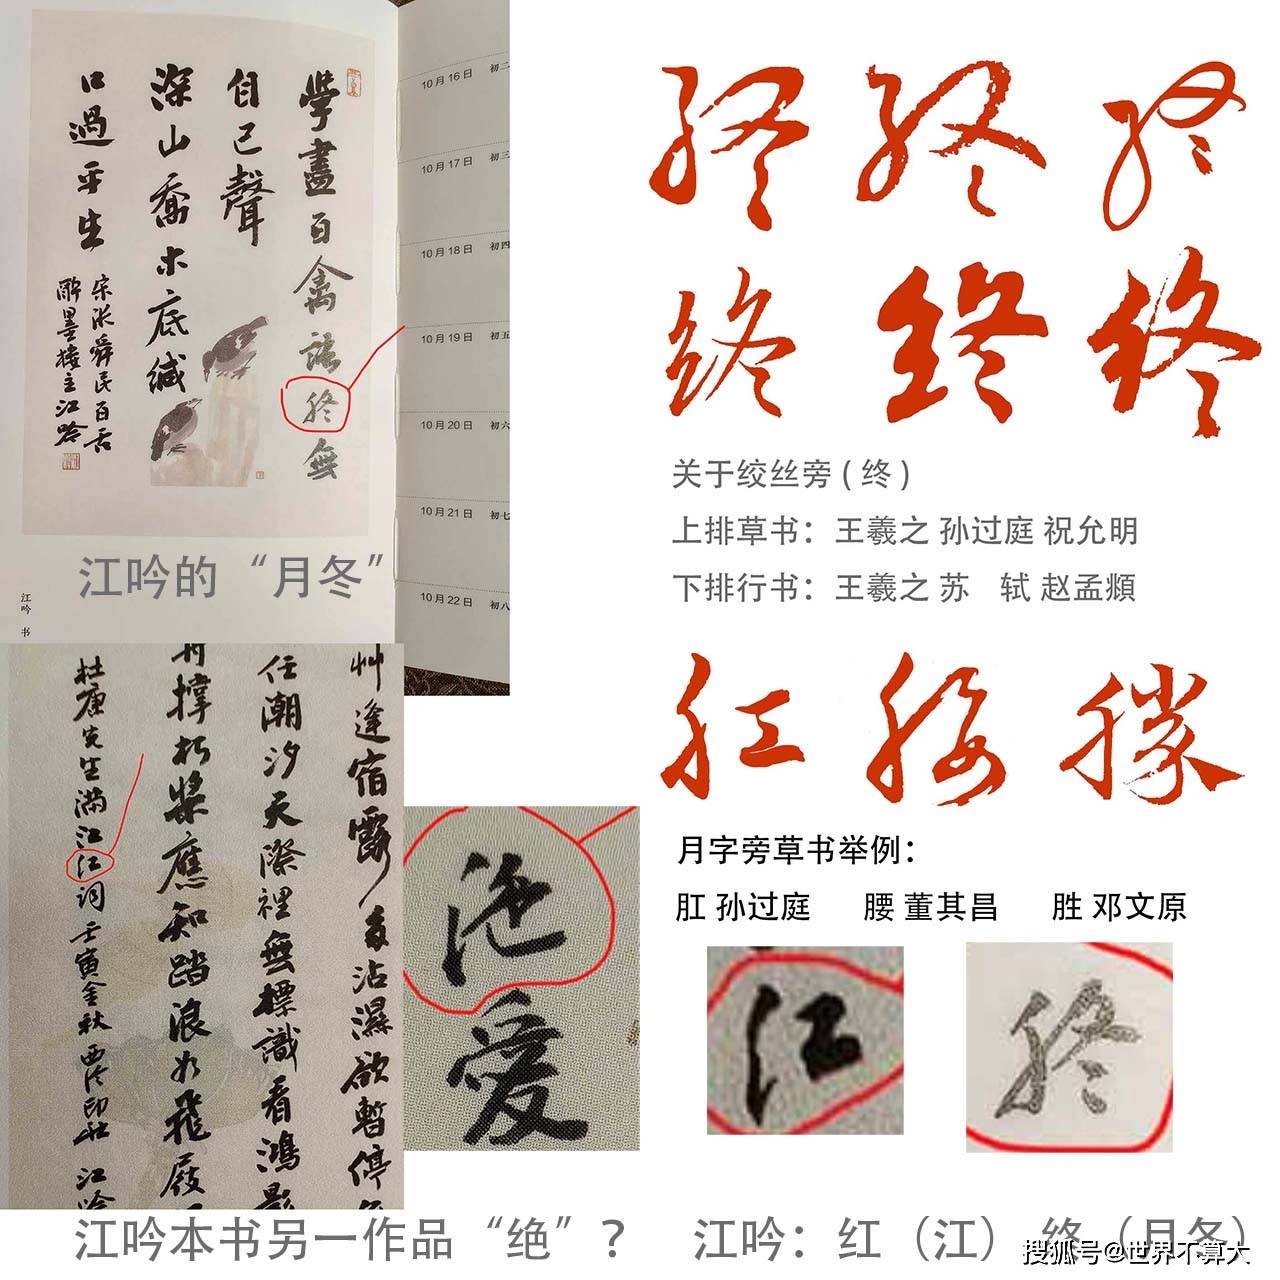 學盡百禽語終無
自己聲
深山喬木底緘
口過平生
宋張舜民百舌
醉墨樓主江吟
10月16日 初二
10月17日 初三
10月18日 初四
10月19日 初五
10月20日 初六
10月21日 初七
10月22日 初八
江吟 书
江吟的“月冬”
終 終 終
終 終 終
关于绞丝旁(终)
上排草书：王羲之 孙过庭 祝允明
下排行书：王羲之 苏 轼 赵孟頫
肛 腰 勝
月字旁草书举例：
肛 孙过庭 腰 董其昌 胜 邓文原
艸逢宿露多沾濕欲暫停
任潮汐天際裡無標識看鴻影
撑朽槳應知踏浪如飛屐
先生滿江红词壬寅金秋西泠印社 江吟
絶
愛
红
終
江吟本书另一作品“绝”？
江吟：红（江） 终（月冬）
搜狐号@世界不算大